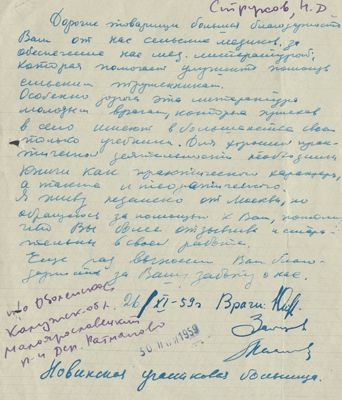 Струков, Н.Д
Дорогие товарищи большая благодарность
Вам от нас сельских медиков, за
обеспечение нас мед. литературой,
которая помогает улучшить помощь
сельским труженикам.
Особенно дорога эта литература
молодым врачам, которые приехав
в село имеют в большинстве своем
только учебники. Для хорошей прак-
тической деятельности необходимы
книги как практического характера,
а также и теоретического.
Я живу недалеко от Москвы, но
обращаюсь за помощью к Вам,
что Вы более отзывчивы и
в своей работе.
Еще раз выносим Вам благо-
дарность за Вашу заботу о нас.
п/о Оболенское
Калужской обл.
Малоярославецкий
р-н Дер. Ратманово
26/XI-59г. Врачи:
30 1959
Новинская участковая больница.